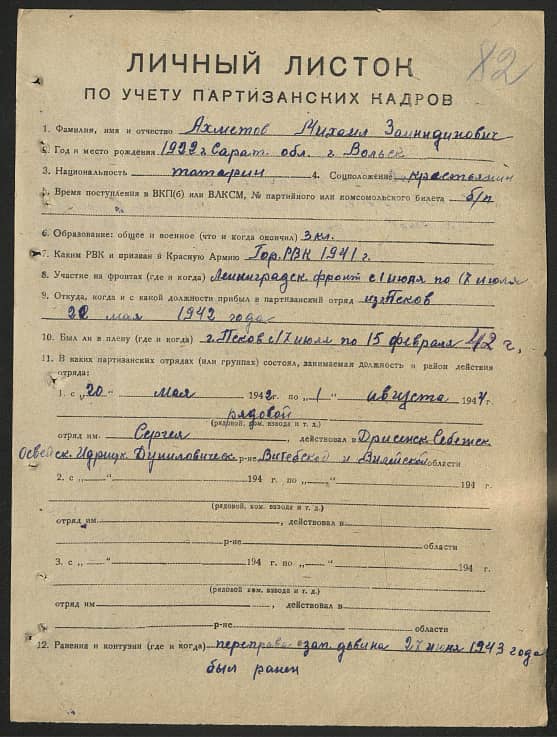 82
ЛИЧНЫЙ ЛИСТОК
ПО УЧЕТУ ПАРТИЗАНСКИХ КАДРОВ
1. Фамилия, имя и отчество Ахметов Михаил Заинидинович
2. Год и место рождения 1922 г Сарат. обл. г. Вольск
3. Национальность татарин 4. Соцположение крестьянин
5. Время поступления в ВКП(б) или ВЛКСМ, № партийного или комсомольского билета б/п
6. Образование: общее и военное (что и когда окончил) 3 кл.
7. Каким РВК и призван в Красную Армию Гор. РВК 1941 г.
8. Участие на фронтах (где и когда) Ленинградск. фронт с 1 июля по 17 июля
9. Откуда, когда и с какой должности прибыл в партизанский отряд из г Псков
22 мая 1942 года
10. Был ли в плену (где и когда) г. Псков с 17 июля по 15 февраля 42 г.
11. В каких партизанских отрядах (или группах) состоял, занимаемая должность и район действия
отряда:
1. с „20“ мая 1942 г. по „1“ августа 1944 г.
рядовой
(рядовой, ком. взвода и т. д.)
отряд им. Сергея , действовал в Дрисенск. Себежск.
Освейск. Идрицк. Дуниловическ р-не Витебской и Вилейской области
2. с „ “ 194 г. по „ “ 194 г.
(рядовой, ком. взвода и т. д.)
отряд им. , действовал в
р-не области
3. с „ “ 194 г. по „ “ 194 г.
(рядовой, ком. взвода и т. д.)
отряд им. , действовал в
р-не области
12. Ранения и контузии (где и когда) переправа зап. двина 27 июня 1943 года
был ранен